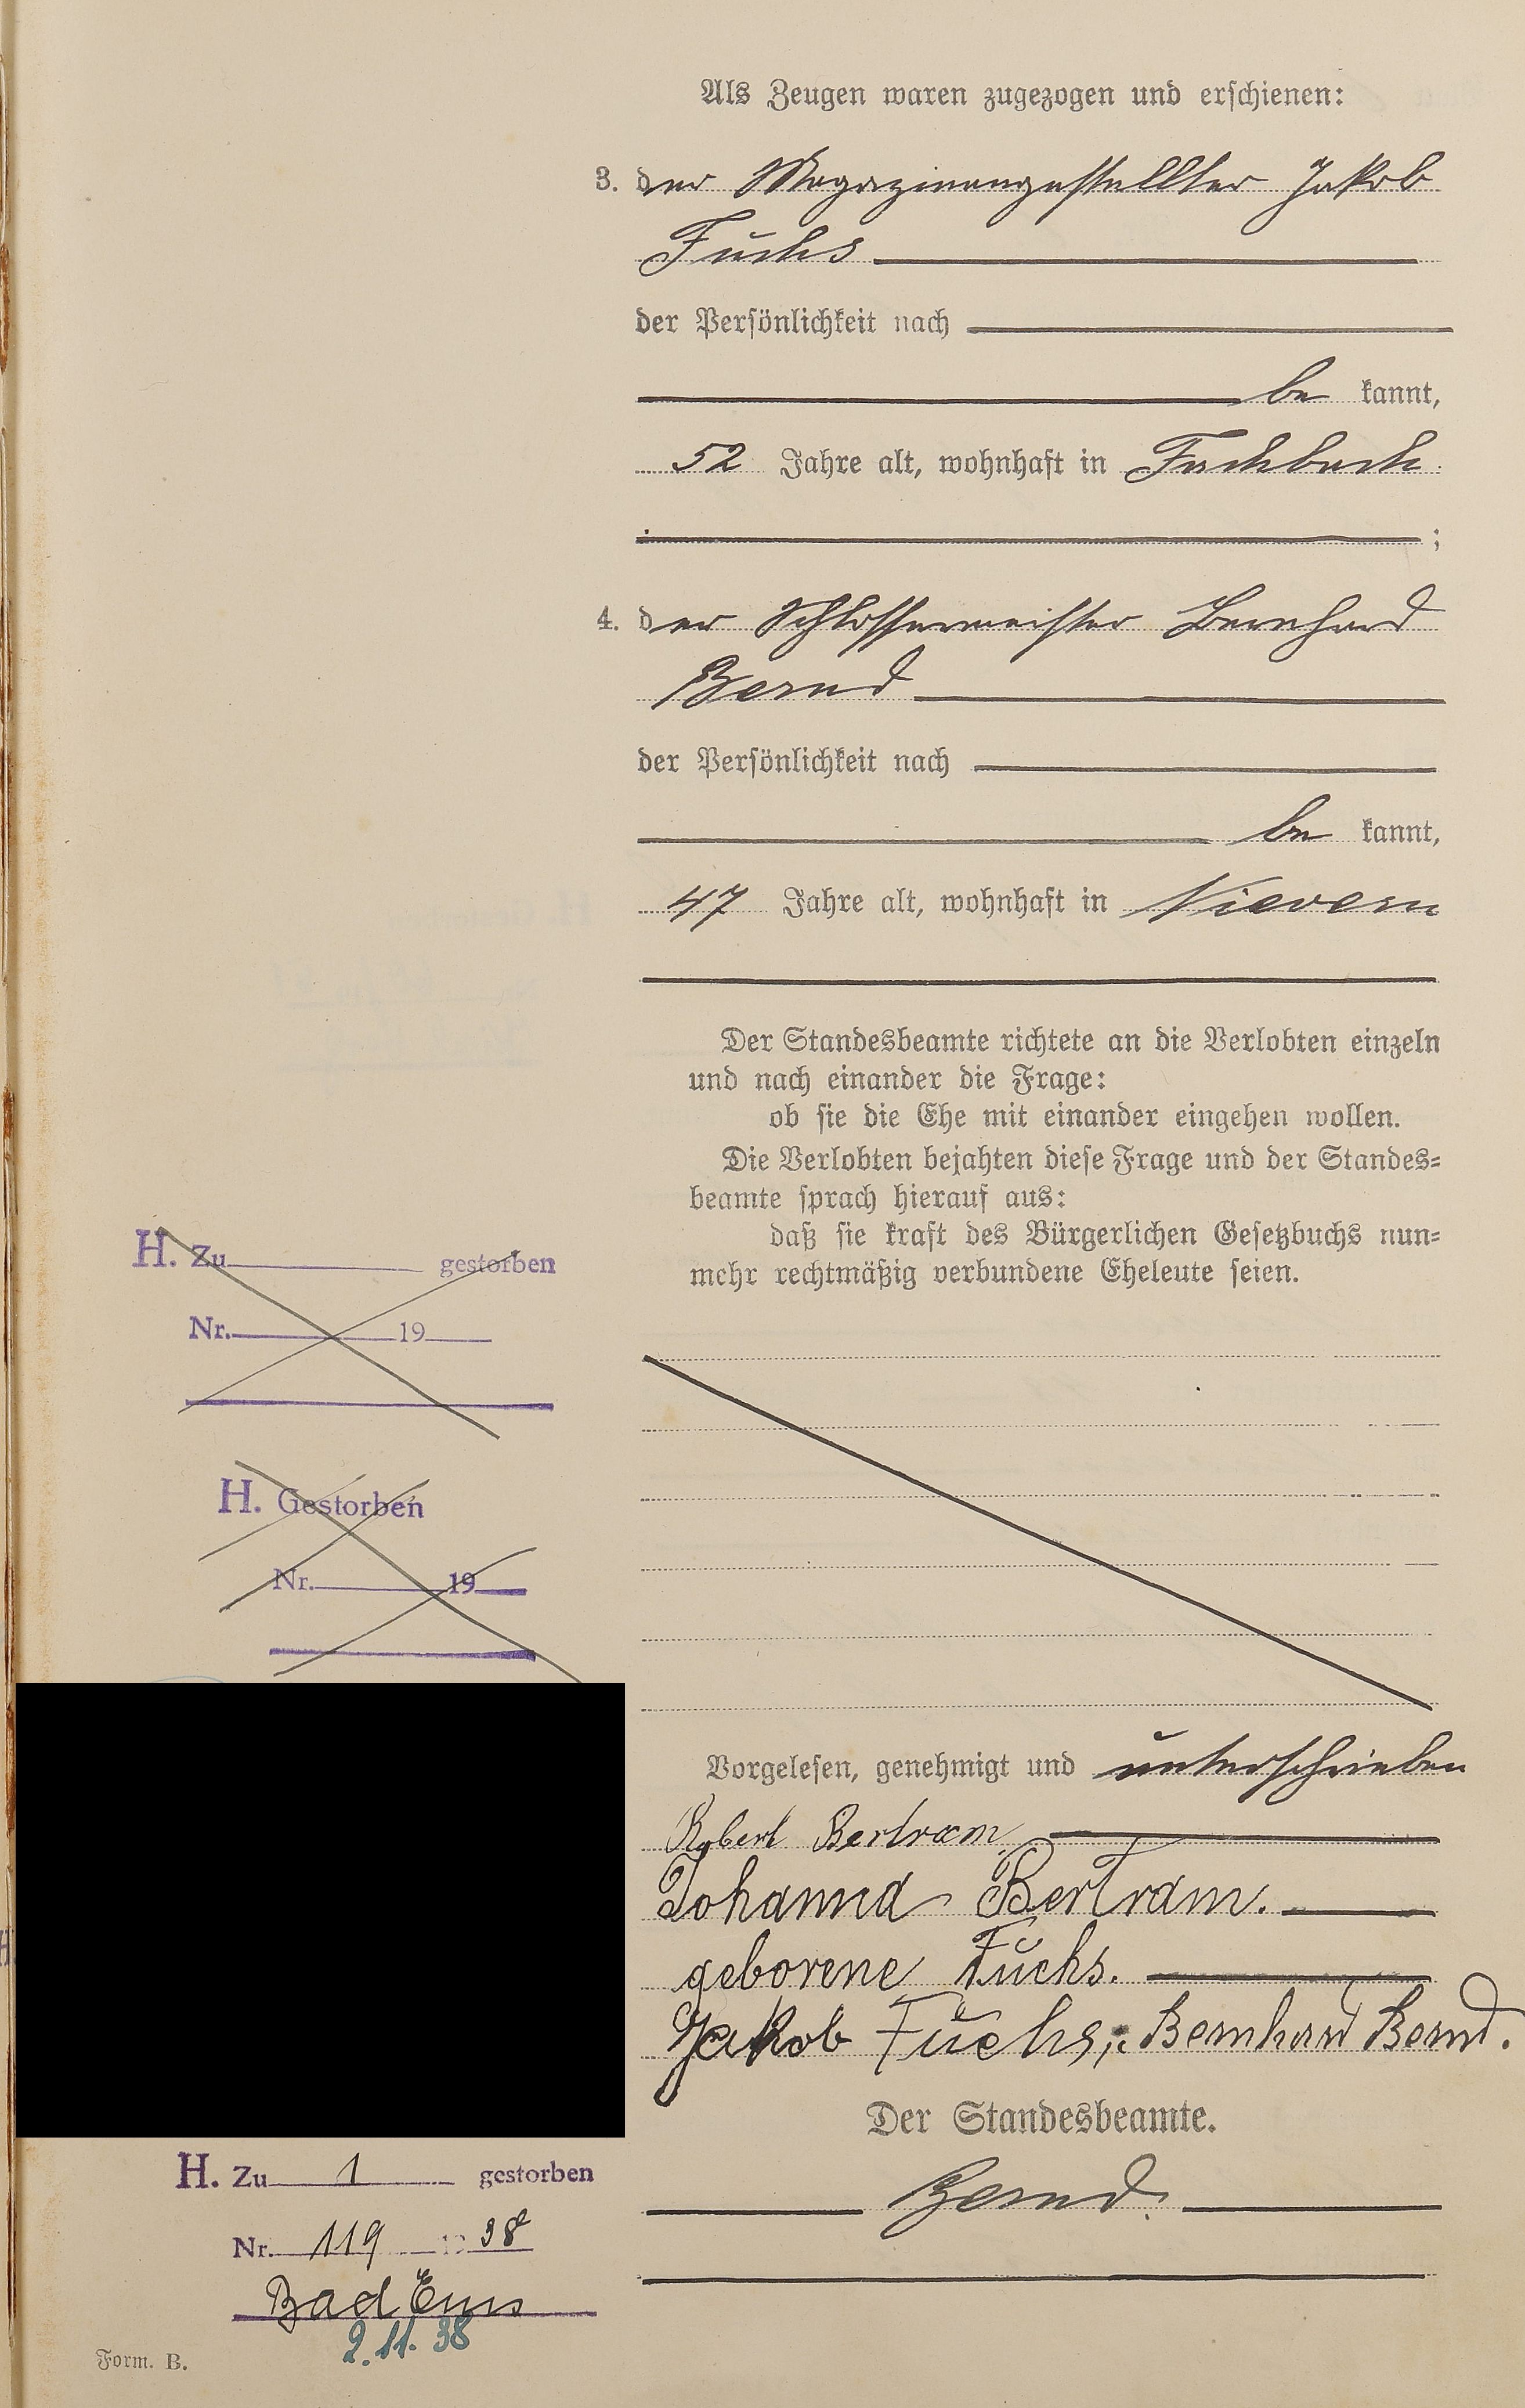 Als Zeugen waren zugezogen und erschienen:
3. der Magazinangestellter Jakob
Fuchs
der Persönlichkeit nach
be kannt,
52 Jahre alt, wohnhaft in Fachbach
;
4. der Schlossermeister Bernhard
Bernd
der Persönlichkeit nach
be kannt,
47 Jahre alt, wohnhaft in Nievern
Der Standesbeamte richtete an die Verlobten einzeln
und nach einander die Frage:
ob sie die Ehe mit einander eingehen wollen.
Die Verlobten bejahten diese Frage und der Standes=
beamte sprach hierauf aus:
daß sie kraft des Bürgerlichen Gesetzbuchs nun=
mehr rechtmäßig verbundene Eheleute seien.
H. Zu gestorben
Nr. 19
H. Gestorben
Nr. 19
Vorgelesen, genehmigt und unterschrieben
Robert Bertram
Johanna Bertram.
geborene Fuchs.
Jakob Fuchs, Bernhard Bernd.
Der Standesbeamte.
Bernd.
H. Zu 1 gestorben
Nr. 119 1938
Bad Ems
2.11.38
Form. B.